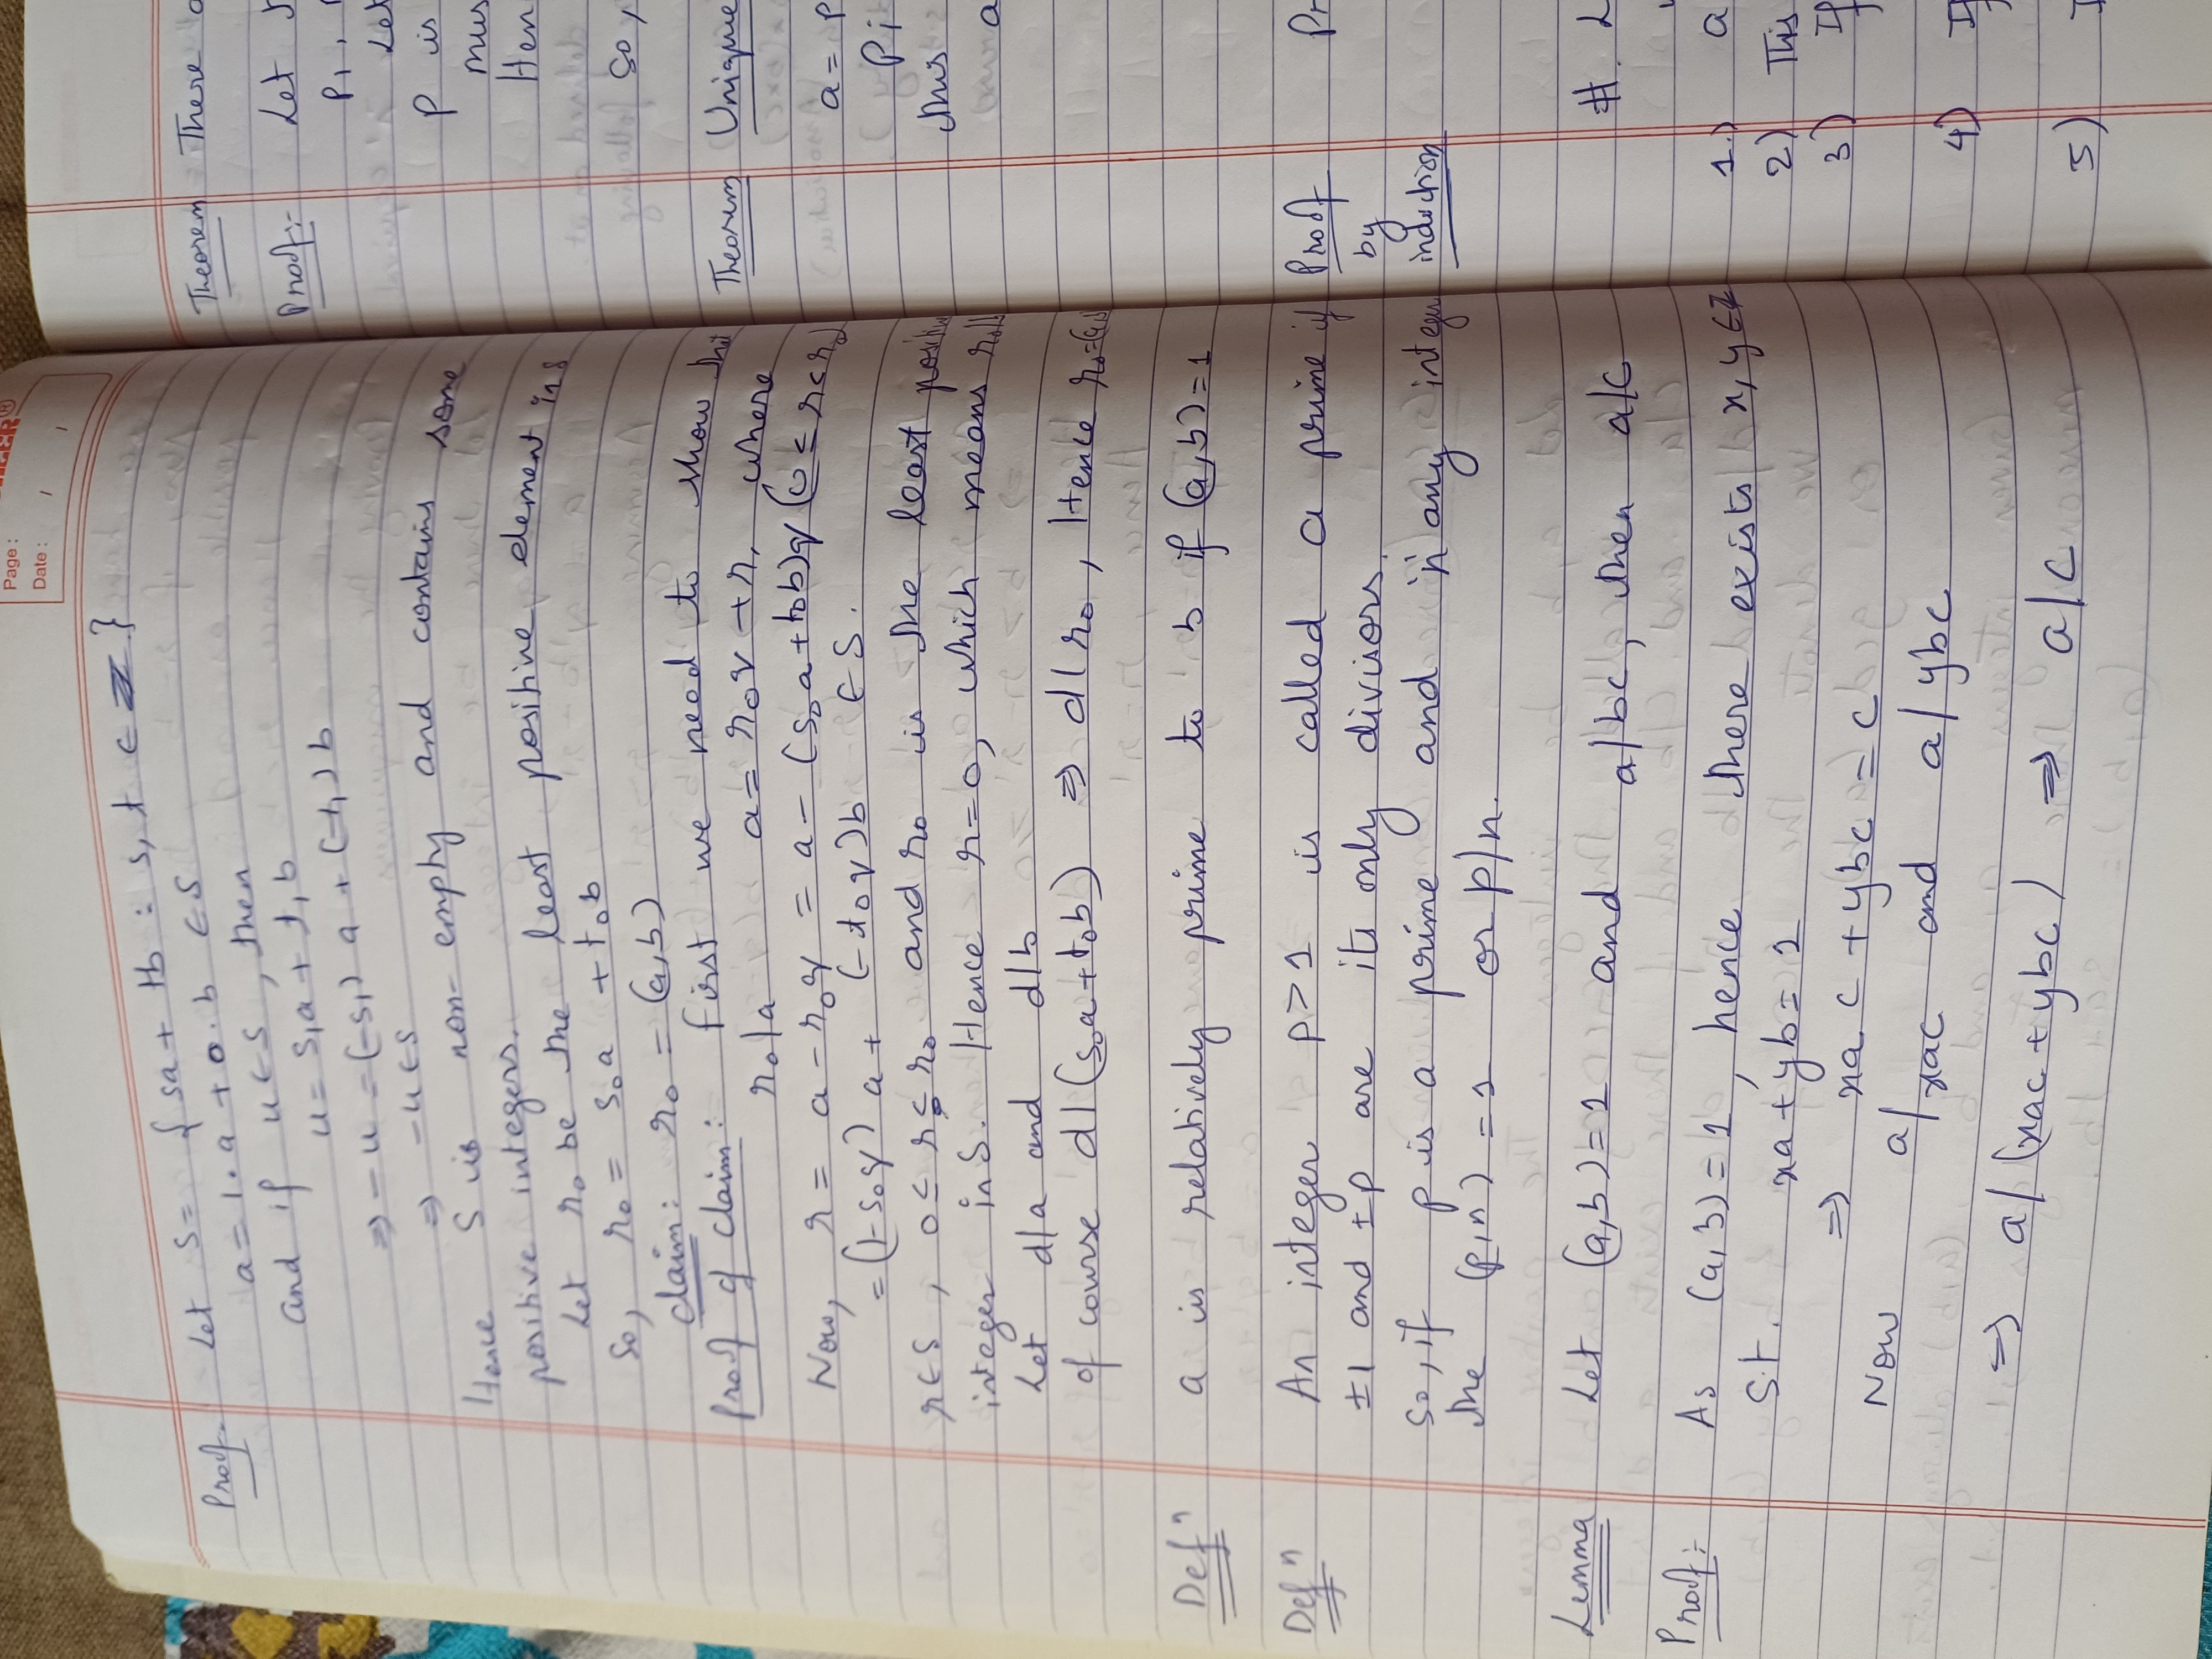 Page:
Date: / /
Proof:- Let S = { sa + tb : s, t ∈ Z }
a = 1. a + 0. b ∈ S
and if u ∈ S, then
u = s₁a + t₁b
⇒ -u = (-s₁) a + (-t₁) b
⇒ -u ∈ S
Hence S is non-empty and contains some
positive integers.
Let r₀ be the least positive element in S
So, r₀ = s₀a + t₀b
Claim: r₀ = (a, b)
Proof of claim: first we need to show
r₀|a a = r₀q + r, where
Now, r = a - r₀q = a - (s₀a + t₀b)q (0 ≤ r < r₀)
= (1 - s₀q) a + (-t₀q) b ∈ S.
r ∈ S, 0 ≤ r < r₀ and r₀ is the least
integer in S. Hence r = 0, which means
Let d|a and d|b
of course d|(s₀a + t₀b) ⇒ d|r₀, Hence
Defⁿ a is relatively prime to b if (a, b) = 1
Defⁿ An integer p > 1 is called a prime if
±1 and ±p are its only divisors.
So, if p is a prime and n any
the (p, n) = 1 or p|n.
Lemma Let (a, b) = 1 and a|bc, then a|c
Proof:- As (a, b) = 1, hence there exists x, y ∈ Z
S.t. xa + yb = 1
⇒ xa c + ybc = c
Now a/xac and a/ybc
⇒ a/(xac + ybc) ⇒ a/c
Theorem There
Proof:- Let
P₁,
Let
P is
mus
Hen
So,
Theorem Unique
a = P
Pi
thus
a
Proof
by
induction
Pr
#
1.) a
2) This
3) If
4) If
5)